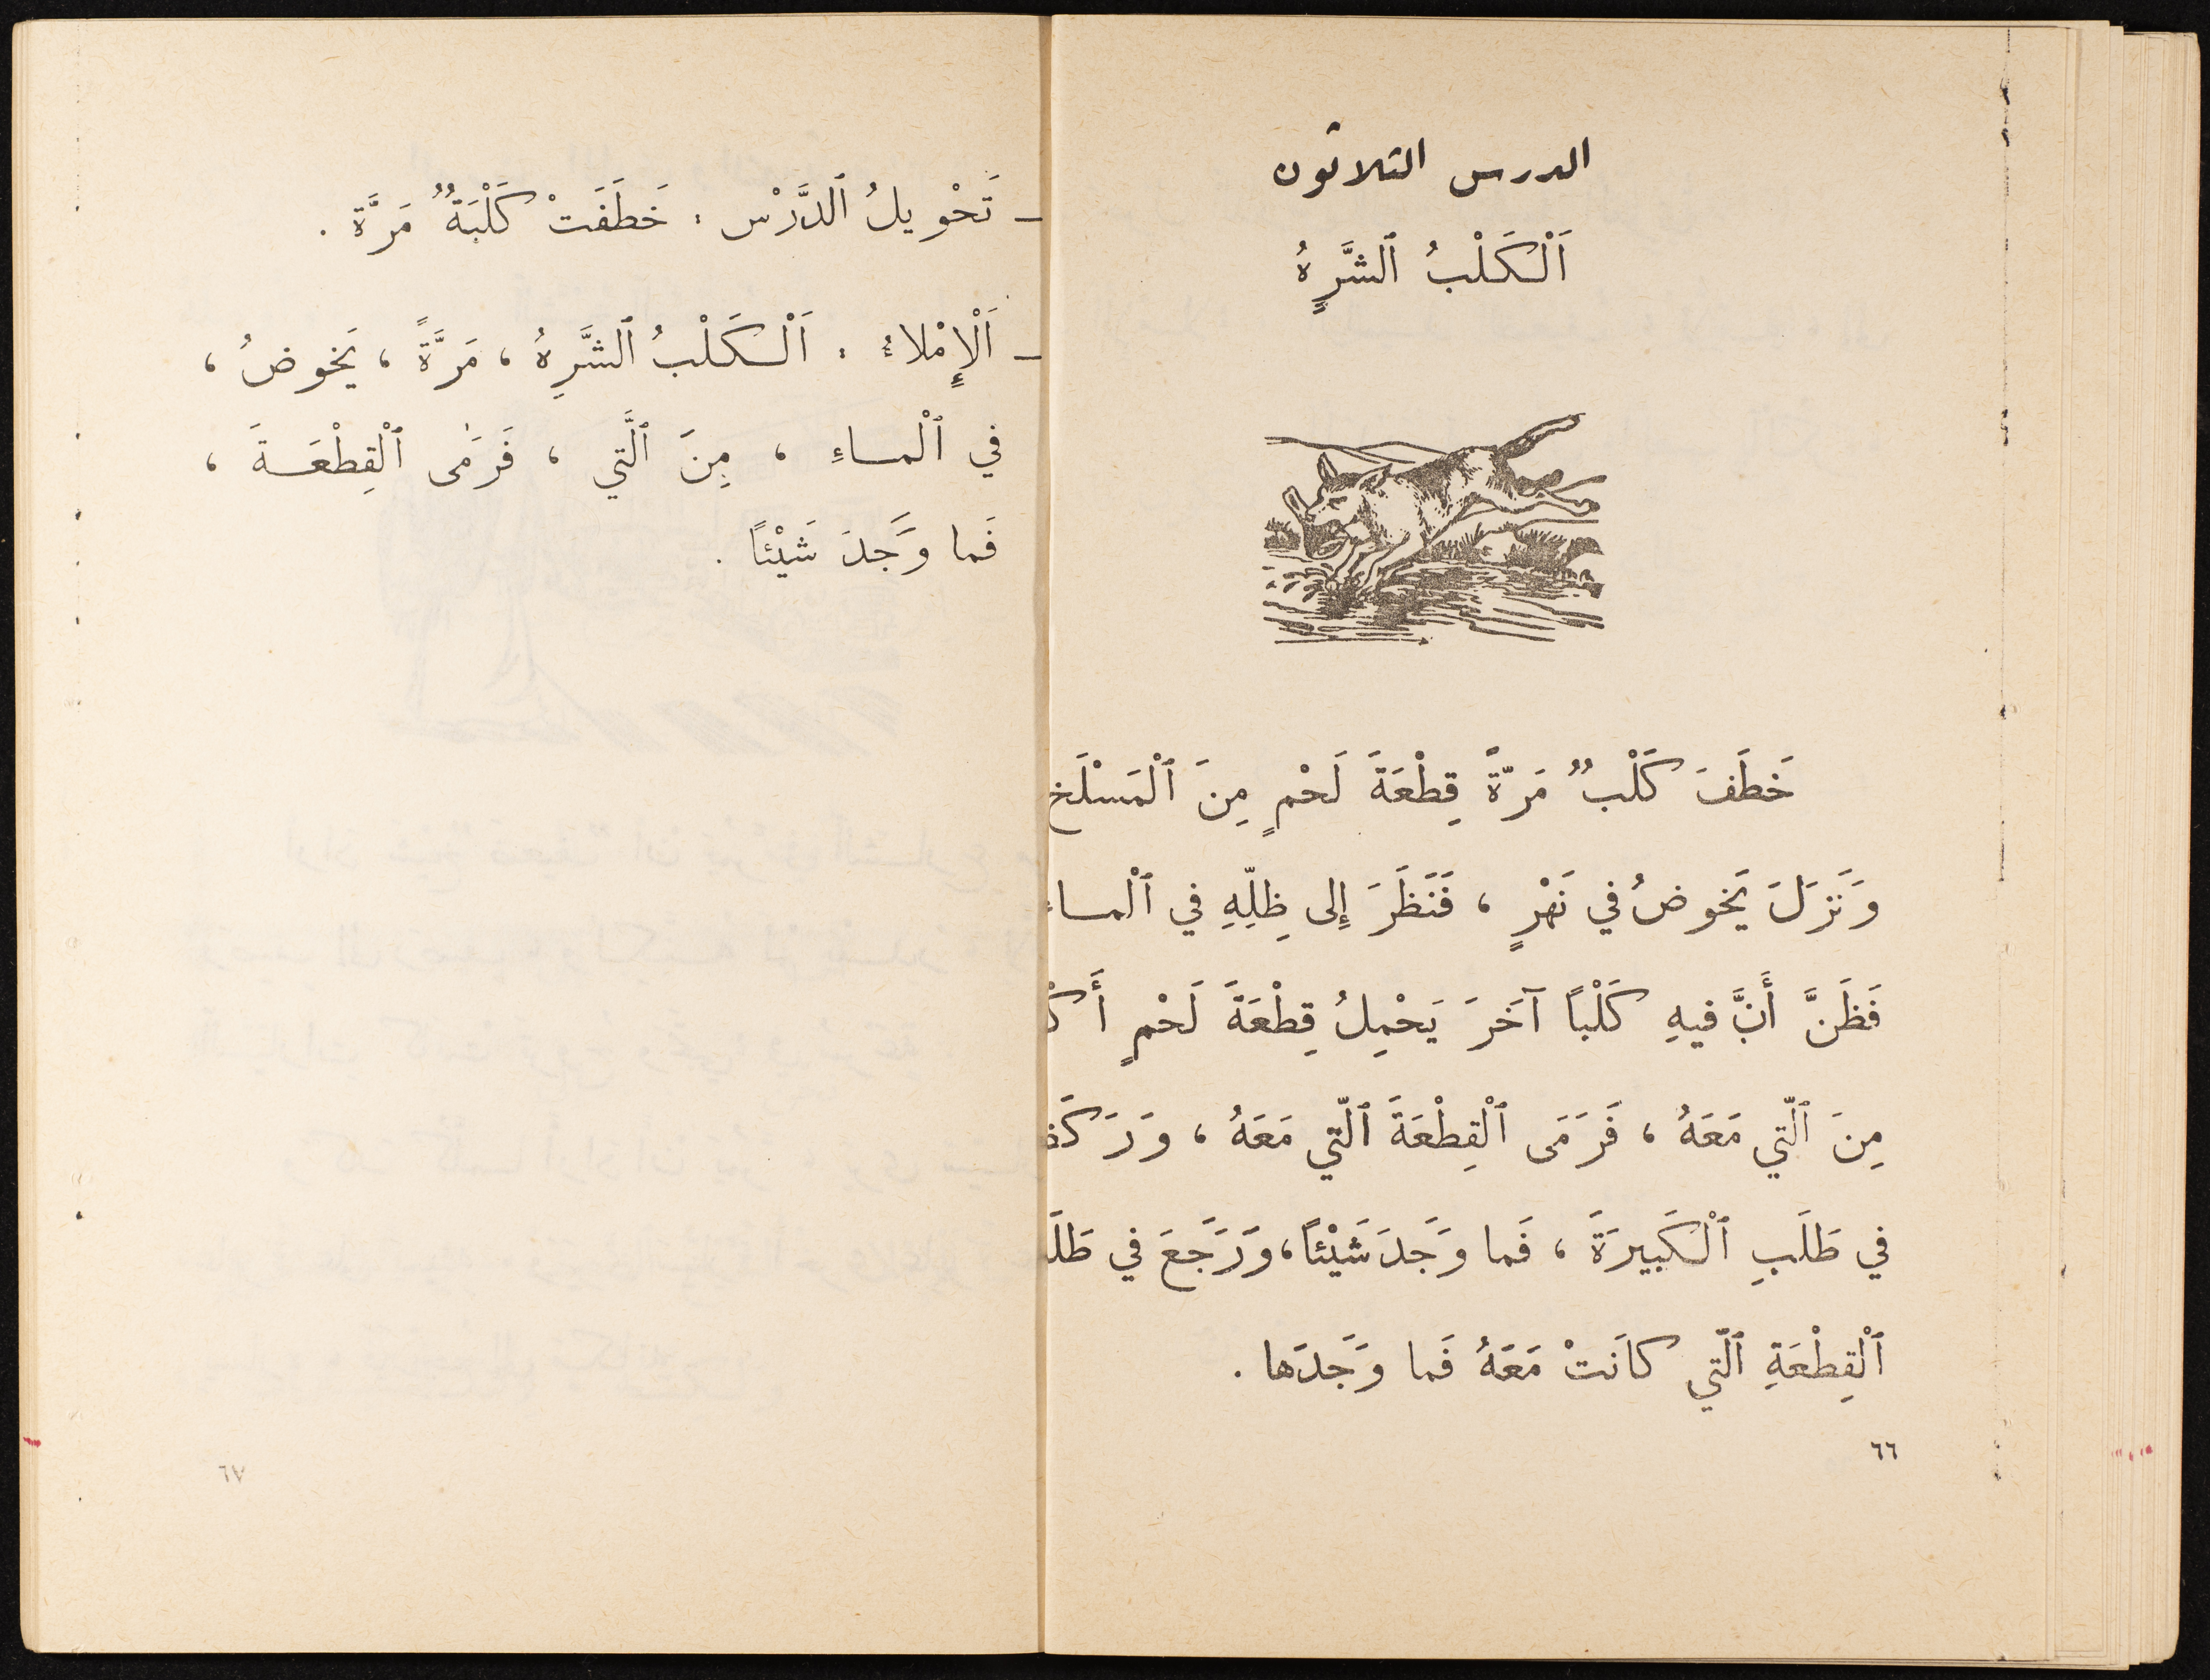 الدرس الثلاثون
اَلْكَلْبُ ٱلشَّرِهُ
خَطَفَ كَلْبٌ مَرّةً قِطْعَةَ لَحْمٍ مِنَ ٱلْمَسْلَخِ
وَنَزَلَ يَخوضُ في نَهْرٍ ، فَنَظَرَ إِلى ظِلِّهِ في ٱلْماءِ
فَظَنَّ أَنَّ فيهِ كَلْباً آخَرَ يَحْمِلُ قِطْعَةَ لَحْمٍ
مِنَ ٱلّتي مَعَهُ ، فَرَمَى ٱلْقِطْعَةَ ٱلّتي مَعَهُ ،
في طَلَبِ ٱلْكَبيرَةَ ، فَما وَجَدَ شَيْئاً، وَرَجَعَ في
ٱلْقِطْعَةِ ٱلّتي كانَتْ مَعَهُ فَما وَجَدَها .
٦٦
– تَحْويلُ ٱلدَّرْس : خَطَفَتْ كَلْبَةٌ مَرَّة .
– اَلْإِمْلاءُ : اَلْكَلْبُ ٱلشَّرِهُ ، مَرَّةً ، يَخوضُ ،
في ٱلْماءِ ، مِنَ ٱلَّتي ، فَرَمٰى ٱلْقِطْعَةَ ،
فَما وَجَدَ شَيْئاً .
٦٧